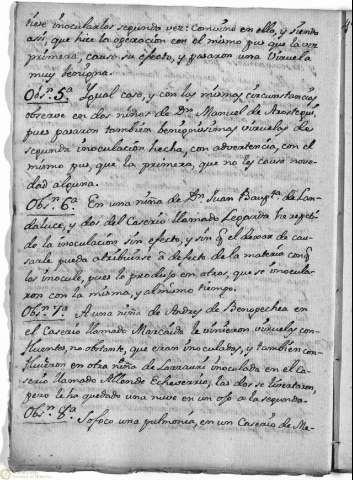 tiese inocularlos segunda vez: Convino en ello, y siendo
asi, que hice la operacion con el mismo pus que la vez
primera, causo su efecto, y pasaron una Viruela
muy benigna.
Obsn. 5a. Igual caso, y con las mismas circunstancias
observe en dos niños de Dn. Manuel de Arostegui,
pues pasaron tambien benignisimas viruelas de
segunda inoculacion hecha, con advertencia, con el
mismo pus, que la primera, que no les causó nove-
dad alguna.
Obsn. 6a. En una niña de Dn. Juan Bauta. de Lan-
daluce, y dos del Caserio llamado Legarda ha repeti-
do la inoculacion sin efecto, y sin q el dexar de cau-
sarle pueda atribuirse á defecto de la materia conq
los inoculé, pues lo produjo en otros, que se inocula-
ron con la misma, y al mismo tiempo.
Obsn. 7a. A una niña de Andres de Bengoechea en
el Caserio llamado Marcaida le vinieron viruelas con-
fluentes, no obstante, que eran inoculadas, y tambien con-
fluieron en otra niña de Larrauri inoculada en el Ca-
serio llamado Allonde Echeverria, las dos se livertaron,
pero le ha quedado una nuve en un ojo a la segunda.
Obsn. 8a. Sofoco una pulmonia, en un Caserio de Me-